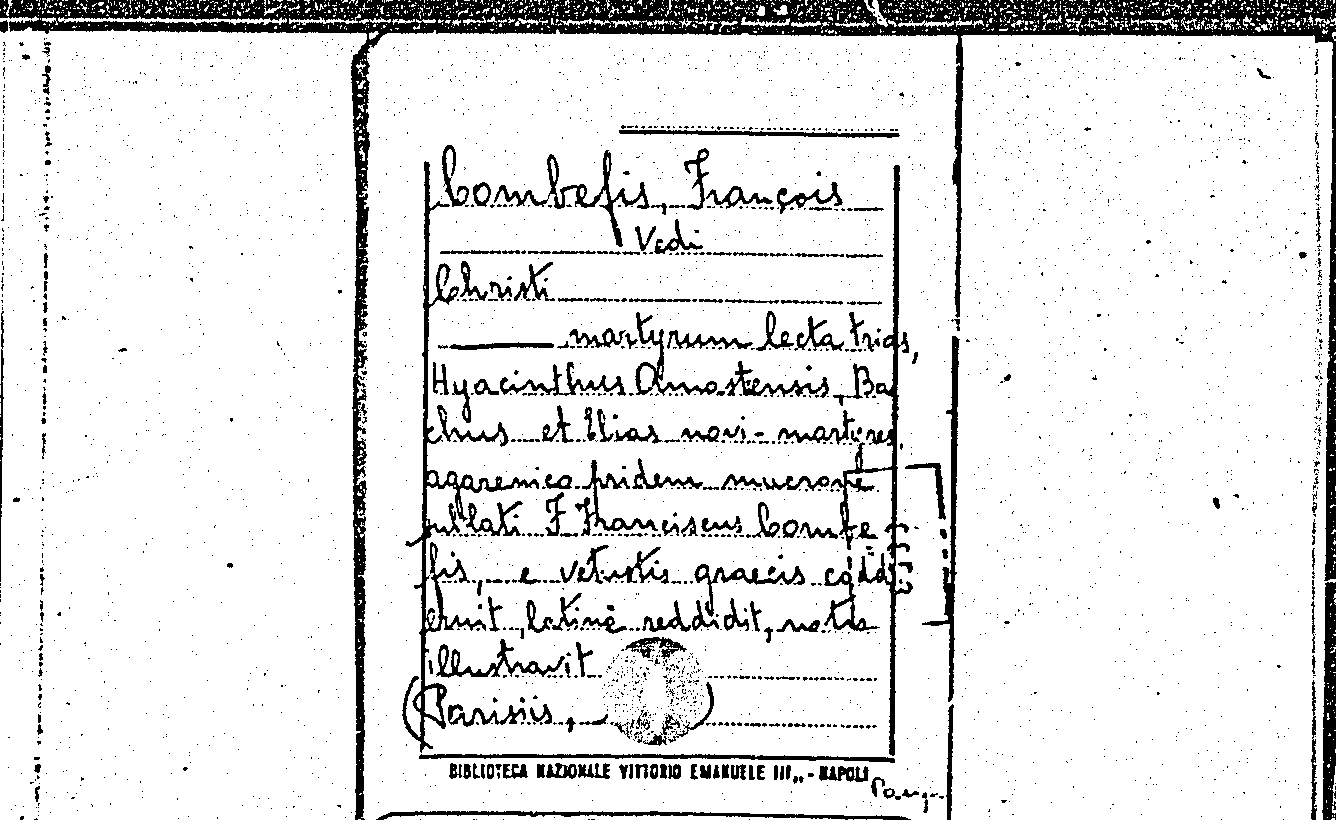 Combefis, François
Vedi
Christi
martyrum lecta trias,
Hyacinthus Amastensis, Ba
chus et Elias novi-martyres
agarenico pridem mucrone
sublati F. Franciscus Combe
fis, e vetustis graecis codd
eruit, latinè reddidit, notis
illustravit
(Parisiis, )
BIBLIOTECA NAZIONALE VITTORIO EMANUELE III,, - NAPOLI